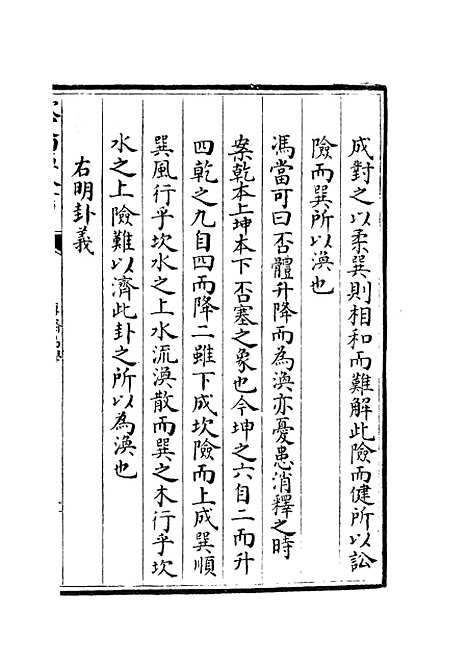 成對之以柔巽則相和而難解此險而健所以訟
險而巽所以渙也
馮當可曰否體升降而為渙亦憂患消釋之時
案乾本上坤本下否塞之象也今坤之六自二而升
四乾之九自四而降二雖下成坎險而上成巽順
巽風行乎坎水之上水流渙散而巽之木行乎坎
水之上險難以濟此卦之所以為渙也
右明卦義